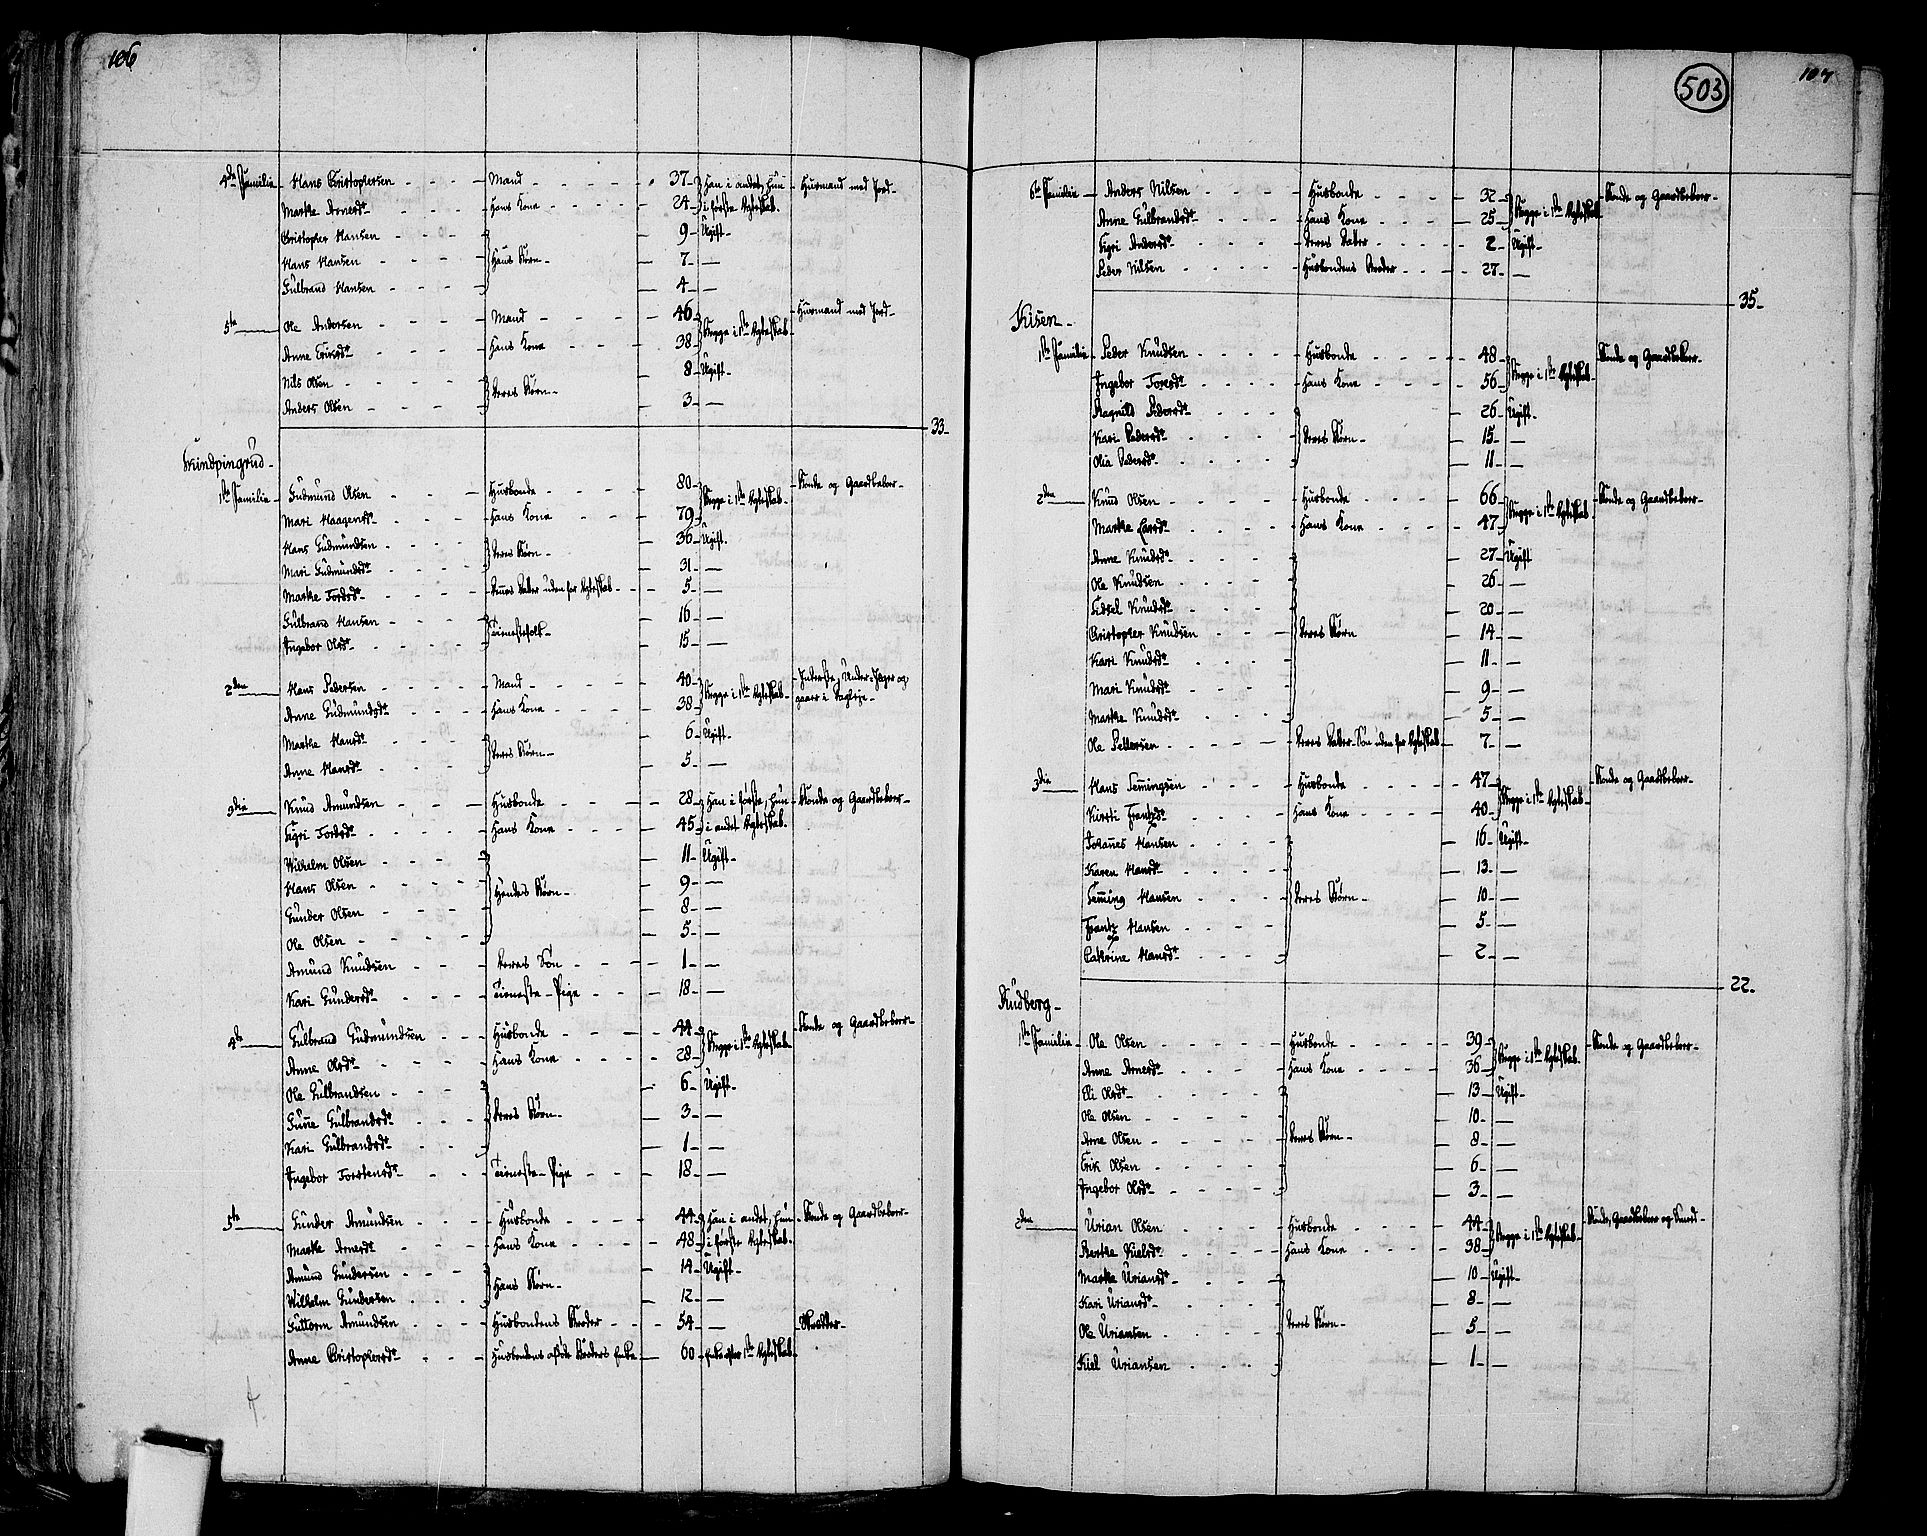 106
4de Familie Hans Christophersen Mand 37 Han i andet, hun Huusmand med Jord
Marthe Arnesdr Hans Kone 24 i første Ægteskab
Christopher Hansen 9 Ugift
Hans Hansen Hans Børn 7 —
Gulbrand Hansen 4 —
5te Ole Andersen Mand 46 Begge i 1ste Ægteskab Huusmand med Jord
Anne Eriksdr Hans Kone 38
Nils Olsen 8 Ugift
Anders Olsen Deres Børn 3 —
33
1ste Familie Gudmund Olsen Husbonde 80 Begge i 1ste Ægteskab Bonde og Gaardbeboer
Mari Haagensdr Hans Kone 79
Hans Gudmundsen 36 Ugift
Mari Gudmundsdr Deres Børn 31 —
Marthe Torersdr Datter uden for Ægteskab 5 —
Gulbrand Hansen 16 —
Ingebor Olsdr Tienestefolk 15 —
2den Hans Pedersen Mand 40 Begge i 1ste Ægteskab Inderste, Under-Jæger og
Anne Gudmundsdr Hans Kone 38 gaaer i
Marthe Hansdr 6 Ugift
Anne Hansdr Deres Børn 5 —
3die Knud Amundsen Husbonde 28 Han i første, hun Bonde og Gaardbeboer
Sigri Torersdr Hans Kone 45 i andet Ægteskab
Wilhelm Olsen 11 Ugift
Hans Olsen Hendes Børn 9 —
Gunder Olsen 8 —
Ole Olsen 5 —
Amund Knudsen Deres Søn 1 —
Kari Gundersdr Tieneste-Pige 18 —
4de Gulbrand Gudmundsen Husbonde 44 Begge i 1ste Ægteskab Bonde og Gaardbeboer
Anne Olsdr Hans Kone 28
Ole Gulbrandsen 6 Ugift
Guri Gulbrandsdr Deres Børn 3 —
Kari Gulbrandsdr 1 —
Ingebor Torstensdr Tieneste-Pige 18 —
5te Gunder Amundsen Husbonde 44 Han i andet, hun Bonde og Gaardbeboer
Marthe Arnesdr Hans Kone 48 i første Ægteskab
Amund Gundersen 14 Ugift
Wilhelm Gundersen Hans Børn 12 —
Guttorm Amundsen Husbondens Broder 54 — Skrædder
Anne Christophersdr Husbondens Broders Enke 60 Enke efter 1ste Ægteskab
503
107
6te Familie Anders Nilsen Husbonde 32 Begge i 1ste Ægteskab Bonde og Gaardbeboer
Anne Gulbrandsdr Hans Kone 25
Sigri Andersdr Deres Datter 2 Ugift
Peder Nilsen Husbondens Broder 27 —
35
Kisen
1ste Familie Peder Knudsen Husbonde 48 Begge i 1ste Ægteskab Bonde og Gaardbeboer
Ingebor Toresdr Hans Kone 56
Ragnild Pedersdr 26 Ugift
Kari Pedersdr Deres Børn 15 —
Olia Pedersdr 11 —
2den Knud Olsen Husbonde 66 Begge i 1ste Ægteskab Bonde og Gaardbeboer
Marthe Larsdr Hans Kone 47
Anne Knudsdr 27 Ugift
Ole Knudsen 26 —
Sidsel Knudsdr 20 —
Christopher Knudsen Deres Børn 14 —
Kari Knudsdr 11 —
Mari Knudsdr 9 —
Marthe Knudsdr 5 —
Ole Pettersen Deres Datter-Søn uden for Ægteskab 7 —
3die Hans Semmingsen Husbonde 47 Begge i 1ste Ægteskab Bonde og Gaardbeboer
Kirsti Frantzdr Hans Kone 40
Johannes Hansen 16 Ugift
Karen Hansdr 13 —
Semming Hansen Deres Børn 10 —
Frantz Hansen 5 —
Cathrine Hansdr 2 —
22
Rudberg
1ste Familie Ole Olsen Husbonde 39 Begge i 1ste Ægteskab Bonde og Gaardbeboer
Anne Arnesdr Hans Kone 36
Eli Olsdr 13 Ugift
Ole Olsen 10 —
Arne Olsen Deres Børn 8 —
Erik Olsen 6 —
Ingebor Olsdr 3 —
2den Urian Olsen Husbonde 44 Begge i 1ste Ægteskab Bonde, Gaardbeboer og Smed
Berthe Kielsdr Hans Kone 38
Marthe Uriansdr 10 Ugift
Kari Uriansdr 8 —
Ole Uriansen Deres Børn 5 —
Kiel Uriansen 1 —